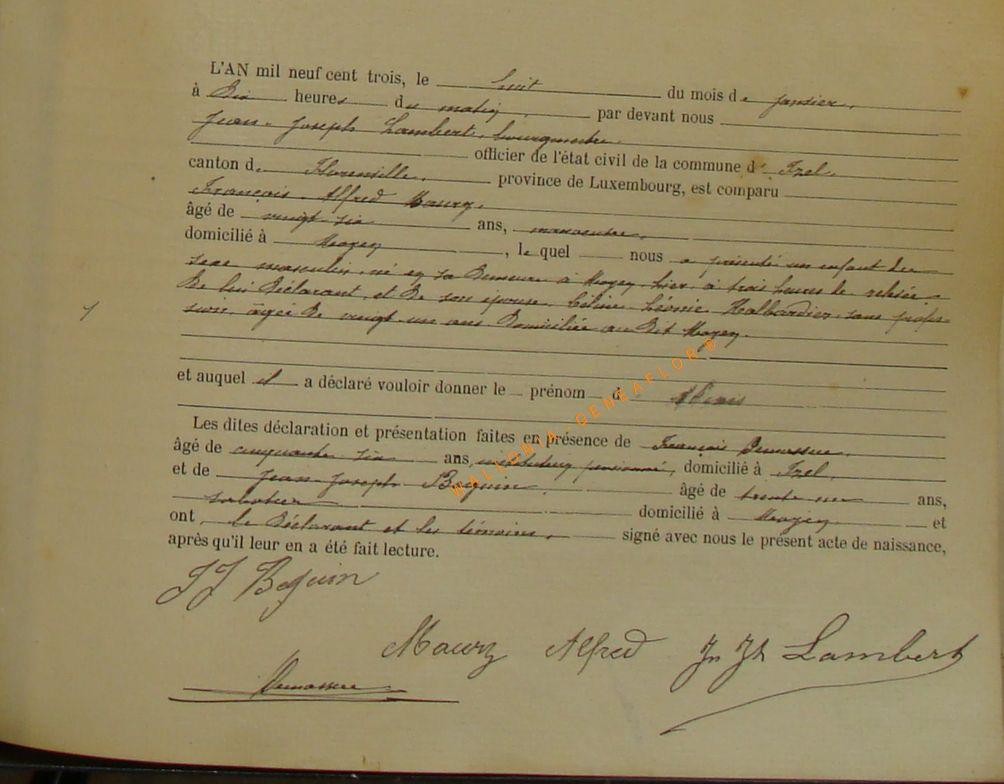 L'AN mil neuf cent trois, le huit du mois de janvier,
à Dix heures du matin, par devant nous
Jean-Joseph Lambert, bourgmestre,
officier de l'état civil de la commune d' Izel,
canton de Florenville, province de Luxembourg, est comparu
François-Alfred Maury,
âgé de vingt-six ans, manoeuvre,
domicilié à Moyen, lequel nous a présenté un enfant du
sexe masculin, né en sa Demeure à Moyen, hier, à trois heures de relevée,
De lui Déclarant, et De son épouse, Céline-Léonie Halbardier, sans profes
sion, âgée De vingt-un ans Domiciliée au Dit Moyen.
et auquel il a déclaré vouloir donner le prénom d'
Les dites déclaration et présentation faites en présence de François Demasure,
âgé de cinquante six ans, instituteur pensionné, domicilié à Izel,
et de Jean-Joseph Bequin, âgé de trente un ans,
sabotier domicilié à Moyen et
ont, le Déclarant et les témoins, signé avec nous le présent acte de naissance,
après qu'il leur en a été fait lecture.
JJ Bequin
Maury Alfred Jn Jh Lambert
WALLONIA - GENEAFLOR ®